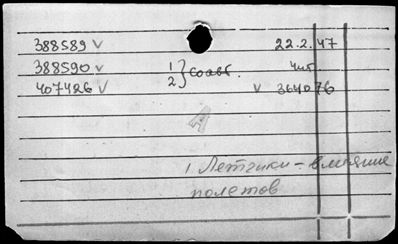 388589 V 22.2.47
388590 V 1 } соавт. 4шт
407426 V 2 V 364076
1 Летчики - влияние
полетов